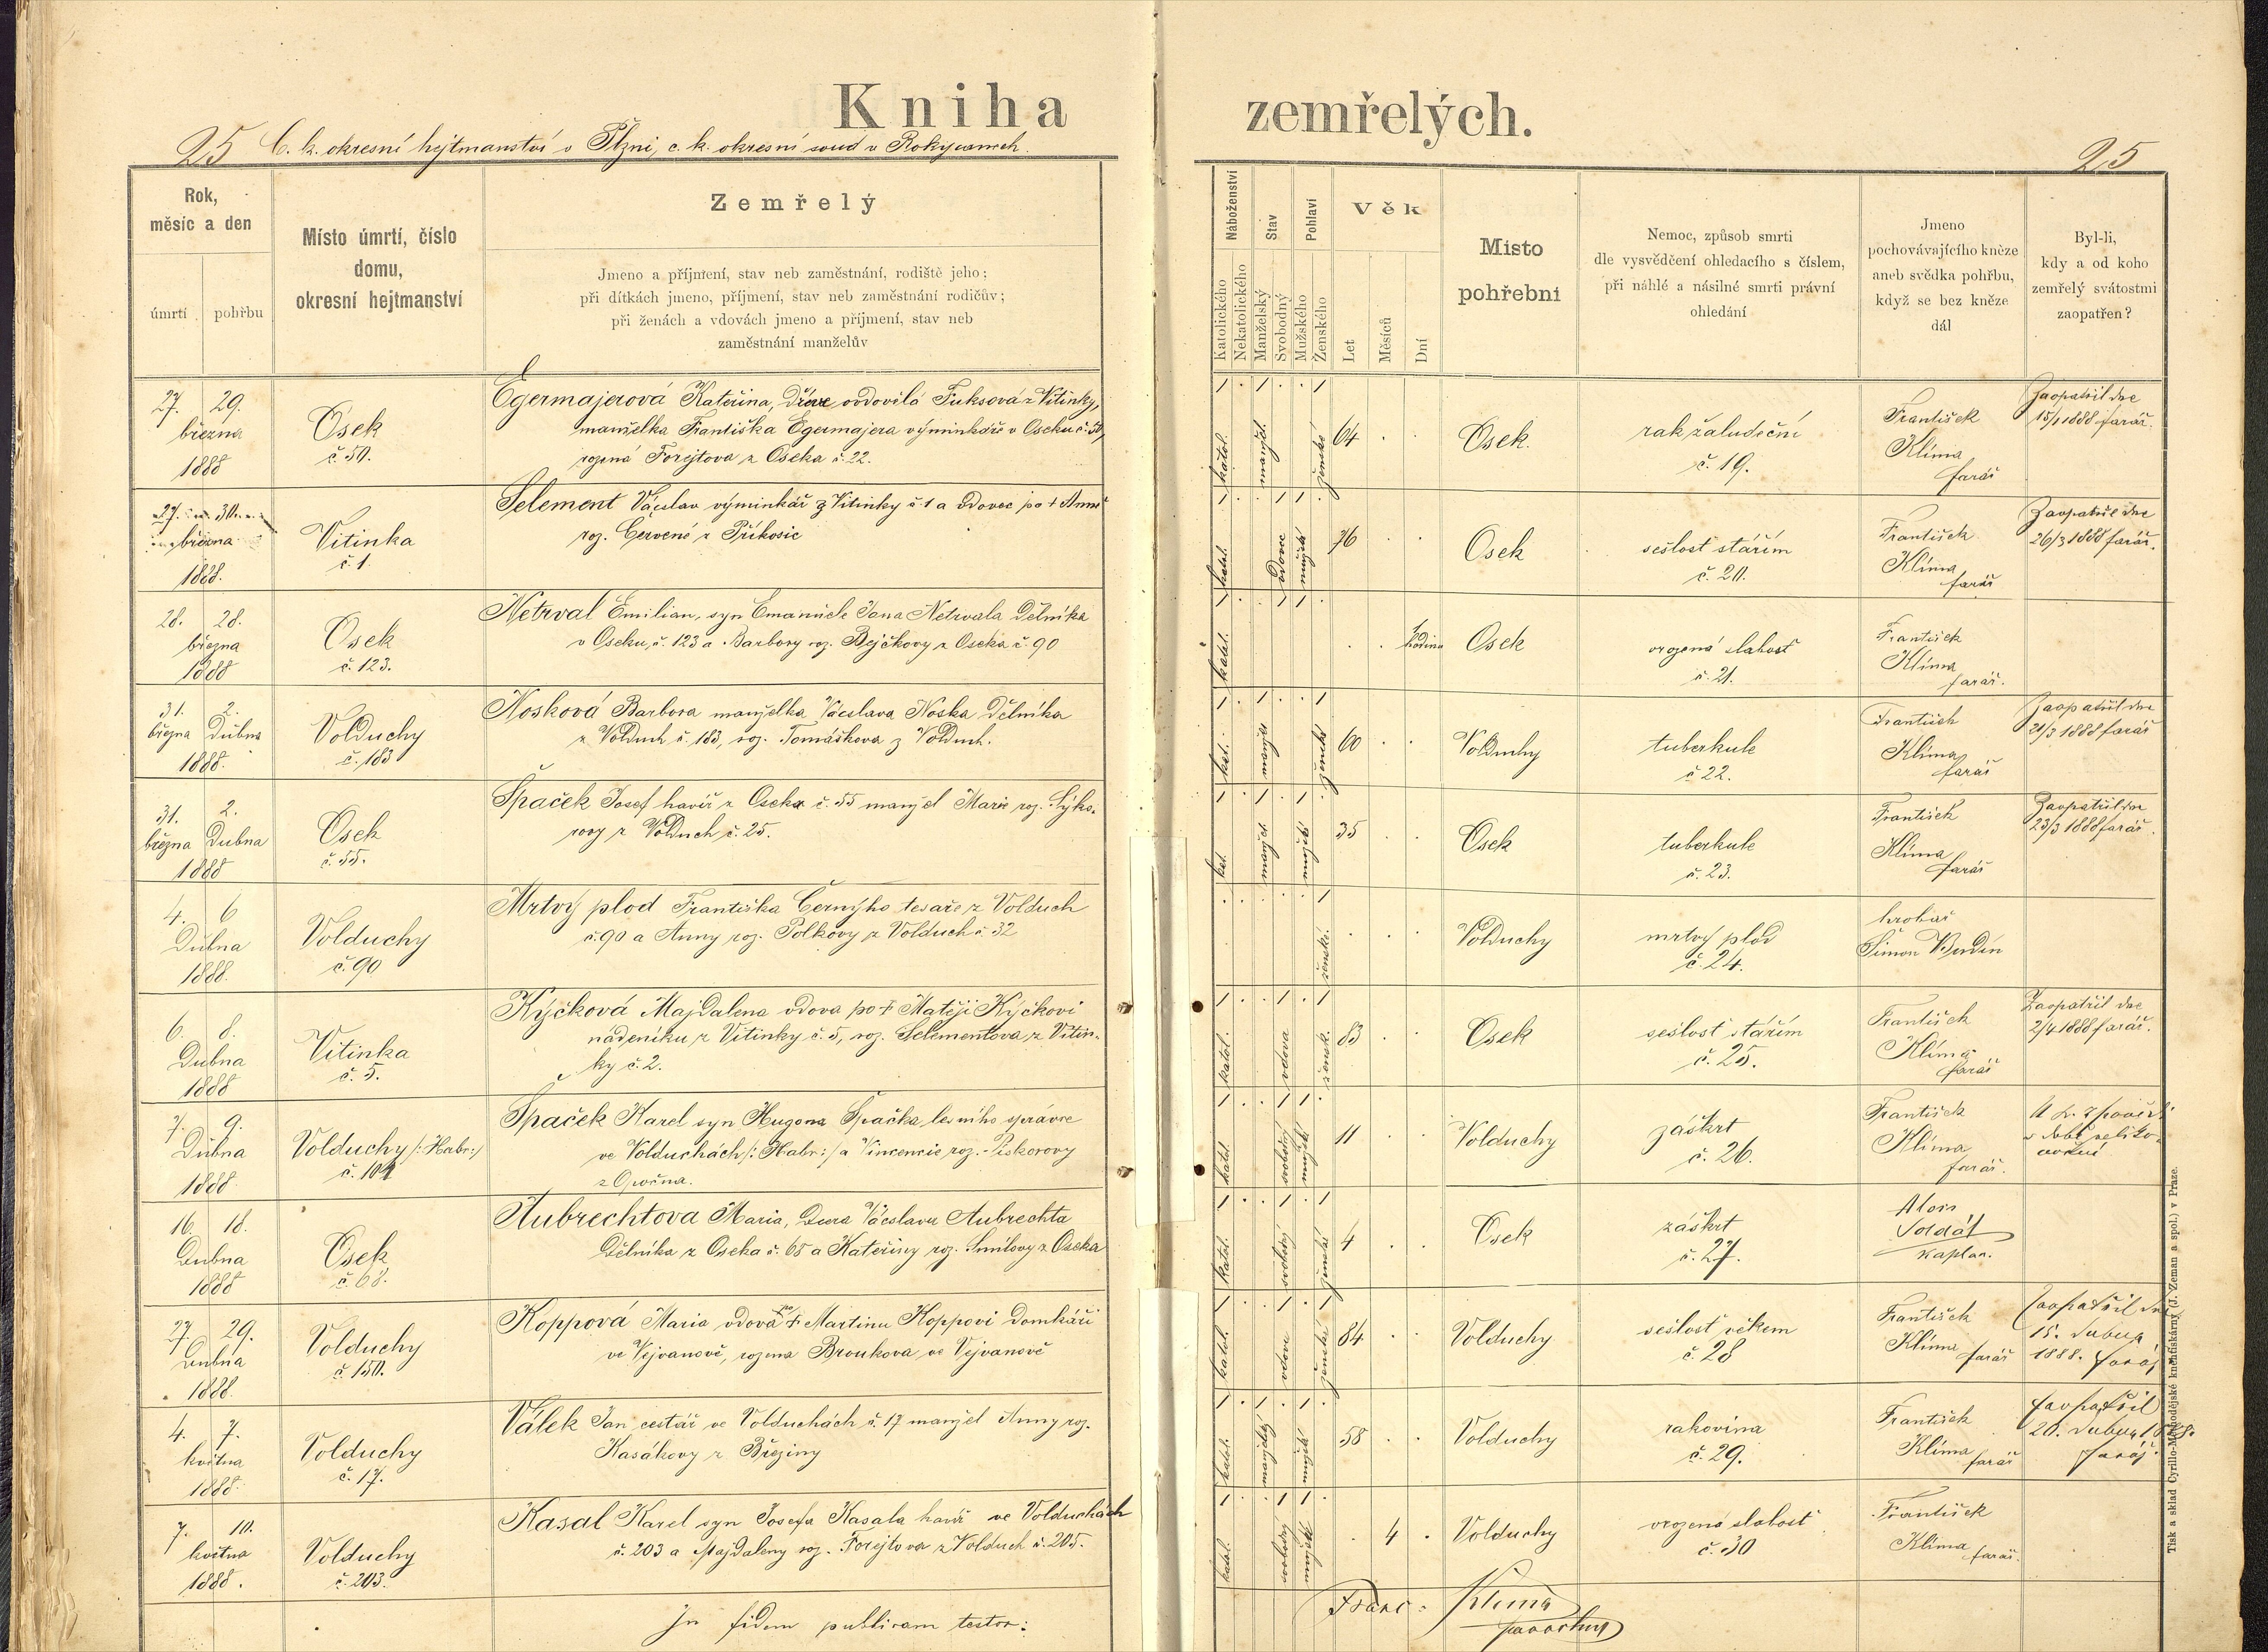 Kniha zemřelých.
25 C. k. okresní hejtmanství v Plzni, c. k. okresní soud v Rokycanech. 25
Rok,
měsíc a den
úmrtí pohřbu
Místo úmrtí, číslo
domu,
okresní hejtmanství
Zemřelý
Jmeno a příjmení, stav neb zaměstnání, rodiště jeho;
při dítkách jmeno, příjmení, stav neb zaměstnání rodičův;
při ženách a vdovách jmeno a přijmení, stav neb
zaměstnání manželův
Náboženství
Katolického
Nekatolického
Stav
Manželský
Svobodný
Pohlaví
Mužského
Ženského
Věk
Let
Měsíců
Dní
Místo
pohřební
Nemoc, způsob smrti
dle vysvědčení ohledacího s číslem,
při náhlé a násilné smrti právní
ohledání
Jmeno
pochovávajícího kněze
aneb svědka pohřbu,
když se bez kněze
dál
Byl-li,
kdy a od koho
zemřelý svátostmi
zaopatřen?
27. 29.
března
1888
Osek
č. 50.
Egermajerová Kateřina, dříve ovdovělá Fuksová z Vitinky,
manželka Františka Egermajera výminkáře v Oseku č. 50,
rozená Forejtova z Oseka č. 22.
1 . 1 . . 1
katol. manžel. ženské 64 . .
Osek.
rak žaludeční
č. 19.
František
Klíma
farář
Zaopatřil dne
15/1 1888 farář.
27. 30.
března
1888.
Vitinka
č. 1.
Selement Václav výminkář z Vitinky č. 1 a vdovec po + Anně
roz. Červené z Příkosic
1 . . 1 1 .
katol. vdovec mužské 76 . .
Osek
sešlost stářím
č. 20.
František
Klíma
farář
Zaopatřil dne
26/3 1888 farář.
28. 28.
března
1888
Osek
č. 123.
Netrval Emilian, syn Emanuele Jana Netrvala dělníka
v Oseku, č. 123 a Barbory roz. Bejčkovy z Oseka č. 90
1 . . 1 1 .
katol. . . 1 hodina
Osek
vrozená slabost
č. 21.
František
Klíma
farář.
31. 2.
března Dubna
1888.
Volduchy
č. 183
Nosková Barbora manželka Václava Noska dělníka
z Volduch č. 183, roz. Tomáškova z Volduch.
1 . 1 . . 1
kat. manžel ženské 60 . .
Volduchy
tuberkule
č. 22.
František
Klíma
farář
Zaopatřil dne
21/3 1888 farář
31. 2.
března Dubna
1888
Osek
č. 55.
Špaček Josef havíř z Oseka č. 55 manžel Marie roz. Sýko-
rovy z Volduch č. 25.
1 . 1 . 1 .
kat. manžel mužské 35 . .
Osek
tuberkule
č. 23.
František
Klíma
farář
Zaopatřil dne
23/3 1888 farář.
4. 6
Dubna
1888.
Volduchy
č. 90
Mrtvý plod Františka Černýho tesaře z Volduch
č. 90 a Anny roz. Polkovy z Volduch č. 32
. . . . . 1
ženské. . . .
Volduchy
mrtvý plod
č. 24.
hrobař
Šimon
6. 8.
Dubna
1888
Vitinka
č. 5.
Kýčková Majdalena vdova po + Matěji Kýčkovi
nádeníku z Vitinky č. 5, roz. Selementova z Vitin-
ky č. 2.
1 . . 1 . 1
katol. vdova žensk. 83 . .
Osek
sešlost stářím
č. 25.
František
Klíma
farář
Zaopatřil dne
2/4 1888 farář.
7. 9.
Dubna
1888
Volduchy /: Habr: /
č. 104
Špaček Karel syn Hugona Špačka, lesního správce
ve Volduchách /: Habr: / a Vincencie roz. Piskorovy
z Opočna.
1 . . 1 1 .
katol. svobodný mužské 11 . .
Volduchy
záškrt
č. 26.
František
Klíma
farář.
v době veliko-
16. 18.
Dubna
1888
Osek
č. 68.
Aubrechtova Maria, dcera Václava Aubrechta
dělníka z Oseka č. 68 a Kateřiny roz. Smílovy z Oseka
1 . . 1 . 1
katol. svobodný ženské 4 . .
Osek
záškrt
č. 27.
Alois
Soldát
kaplan.
27. 29.
Dubna
1888.
Volduchy
č. 150.
Koppová Maria vdova po + Martinu Koppovi domkáři
ve Vejvanově, rozena Broukova ve Vejvanově
1 . . 1 . 1
katol. vdova ženské 84 . .
Volduchy
sešlost věkem
č. 28
František
Klíma
farář
Zaopatřil dne
15. dubna
1888. farář
4. 7.
května
1888.
Volduchy
č. 17.
Válek Jan cestář ve Volduchách č. 17 manžel Anny roz.
Kasákovy z Březiny
1 . 1 . 1 .
katol. manželský mužské 58 . .
Volduchy
rakovina
č. 29.
František
Klíma
farář
Zaopatřil
20. dubna 1888.
farář.
7. 10.
května
1888.
Volduchy
č. 203.
Kasal Karel syn Josefa Kasala havíř ve Volduchách
č. 203 a Majdaleny roz. Forejtova z Volduch č. 205.
1 . . 1 1 .
katol. svobodný mužské . 4 .
Volduchy
vrozená slabost
č. 30
František
Klíma
farář.
In fidem publicam testor: Franc: Klima
parochus
Tisk a sklad Cyrillo-Methodějské knihtiskárny (J. Zeman a spol.) v Praze.